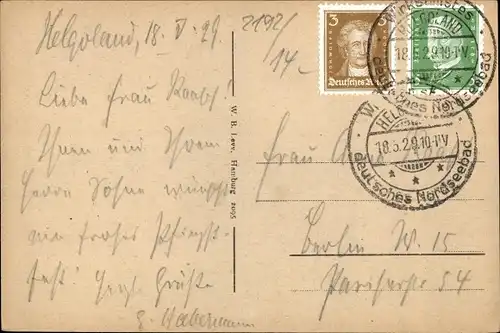 Helgoland, 18. V. 29.
Liebe Frau Raabe!
Ihnen und Ihrem
Herrn Sohne wünscht
ein frohes Pfingst-
fest! Herzl. Grüße
2192/
14.-
W. B. Levy, Hamburg 2095
3
Deutsches Reich
HELGOLAND
18.5.29.10-11V
deutsches Nordseebad
HELGOLAND
18.5.29.10-11V
deutsches Nordseebad
Frau
Berlin W. 15
Pariserstr 54